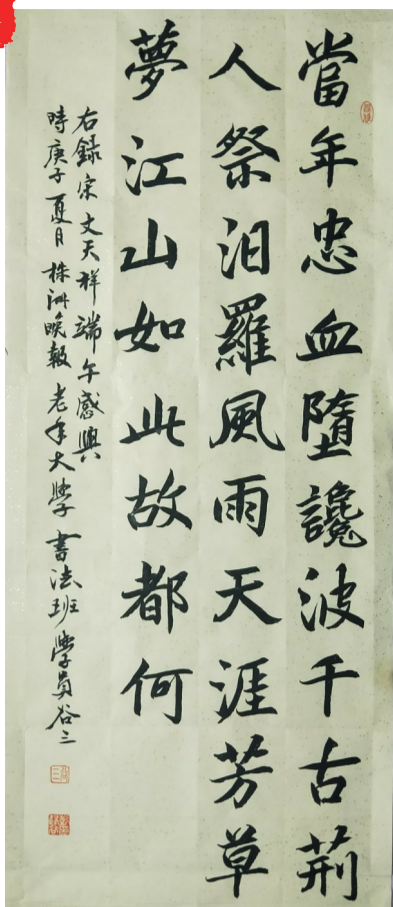 當年忠血墮讒波千古荊
人祭汨羅風雨天涯芳草
夢江山如此故都何
右錄宋文天祥端午感興
時庚子夏月株洲晚報老年大學書法班學員谷三